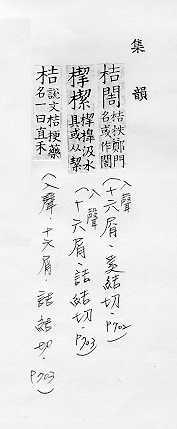 集韻
桔 桔柣鄭門名或作
(入聲．十六屑．奚結切．P702)
汲水具或从絜
(入聲．十六屑．詰結切．P703)
桔 說文桔梗藥名一曰直木
(入聲．十六屑．詰結切．P703)